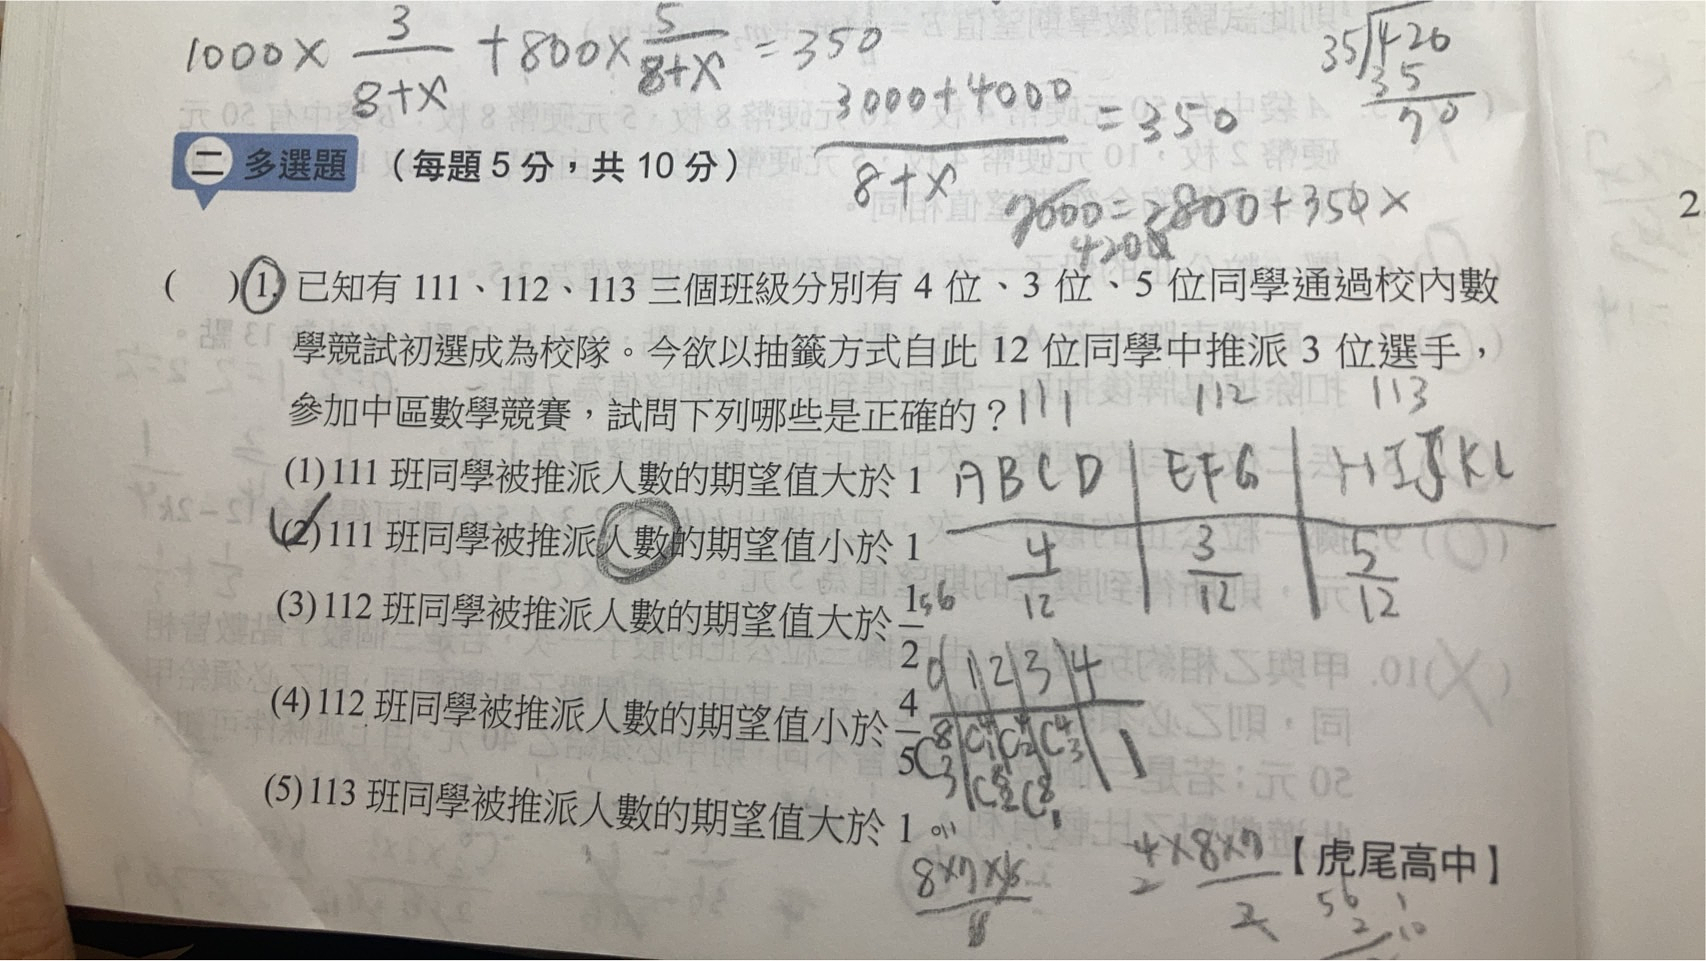 1000× 3/8+x +800× 5/8+x =350
3000+4000/8+x =350
35 420
35
70
二 多選題 (每題5分,共10分)
7000=2800+350x
4200
2
( )1. 已知有 111、112、113 三個班級分別有 4 位、3 位、5 位同學通過校內數
學競試初選成為校隊。今欲以抽籤方式自此 12 位同學中推派 3 位選手,
參加中區數學競賽,試問下列哪些是正確的?
111 112 113
(1)111 班同學被推派人數的期望值大於 1
A B C D E F G H I J K L
(2)111 班同學被推派人數的期望值小於 1
4/12 3/12 5/12
(3)112 班同學被推派人數的期望值大於 1/2
56
0 1 2 3 4
(4)112 班同學被推派人數的期望值小於 4/5
C83 C41 C42 C43 1
C82 C81
(5)113 班同學被推派人數的期望值大於 1
8×7×6
4×8×7
2 2
【虎尾高中】
56
2